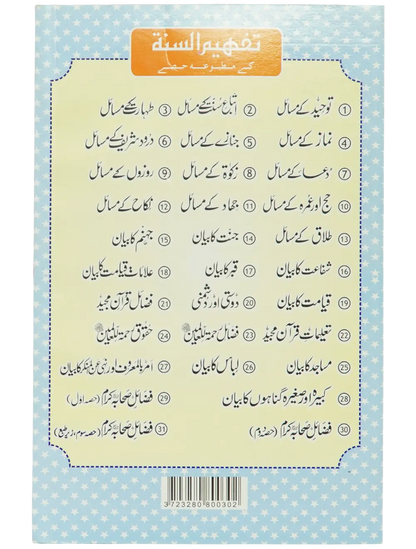 تفہیم السنۃ
کے مطبوعہ حصے
① توحید کے مسائل ② اتباع سنت کے مسائل ③ طہارت کے مسائل
④ نماز کے مسائل ⑤ جنازے کے مسائل ⑥ درود شریف کے مسائل
⑦ دعا کے مسائل ⑧ زکوٰۃ کے مسائل ⑨ روزوں کے مسائل
⑩ حج اور عمرہ کے مسائل ⑪ جہاد کے مسائل ⑫ نکاح کے مسائل
⑬ طلاق کے مسائل ⑭ جنت کا بیان ⑮ جہنم کا بیان
⑯ شفاعت کا بیان ⑰ قبر کا بیان ⑱ علامات قیامت کا بیان
⑲ قیامت کا بیان ⑳ دوستی اور دشمنی ㉑ فضائل قرآن مجید
㉒ تعلیمات قرآن مجید ㉓ فضائل رحمۃ للعالمین ﷺ ㉔ حقوق رحمۃ للعالمین ﷺ
㉕ مساجد کا بیان ㉖ لباس کا بیان ㉗ امر بالمعروف اور نہی عن المنکر کا بیان
㉘ کبیرہ اور صغیرہ گناہوں کا بیان ㉙ فضائل صحابہ کرام (حصہ اول)
㉚ فضائل صحابہ کرام (حصہ دوم) ㉛ فضائل صحابہ کرام (حصہ سوم، زیر طبع)
3723280 800302